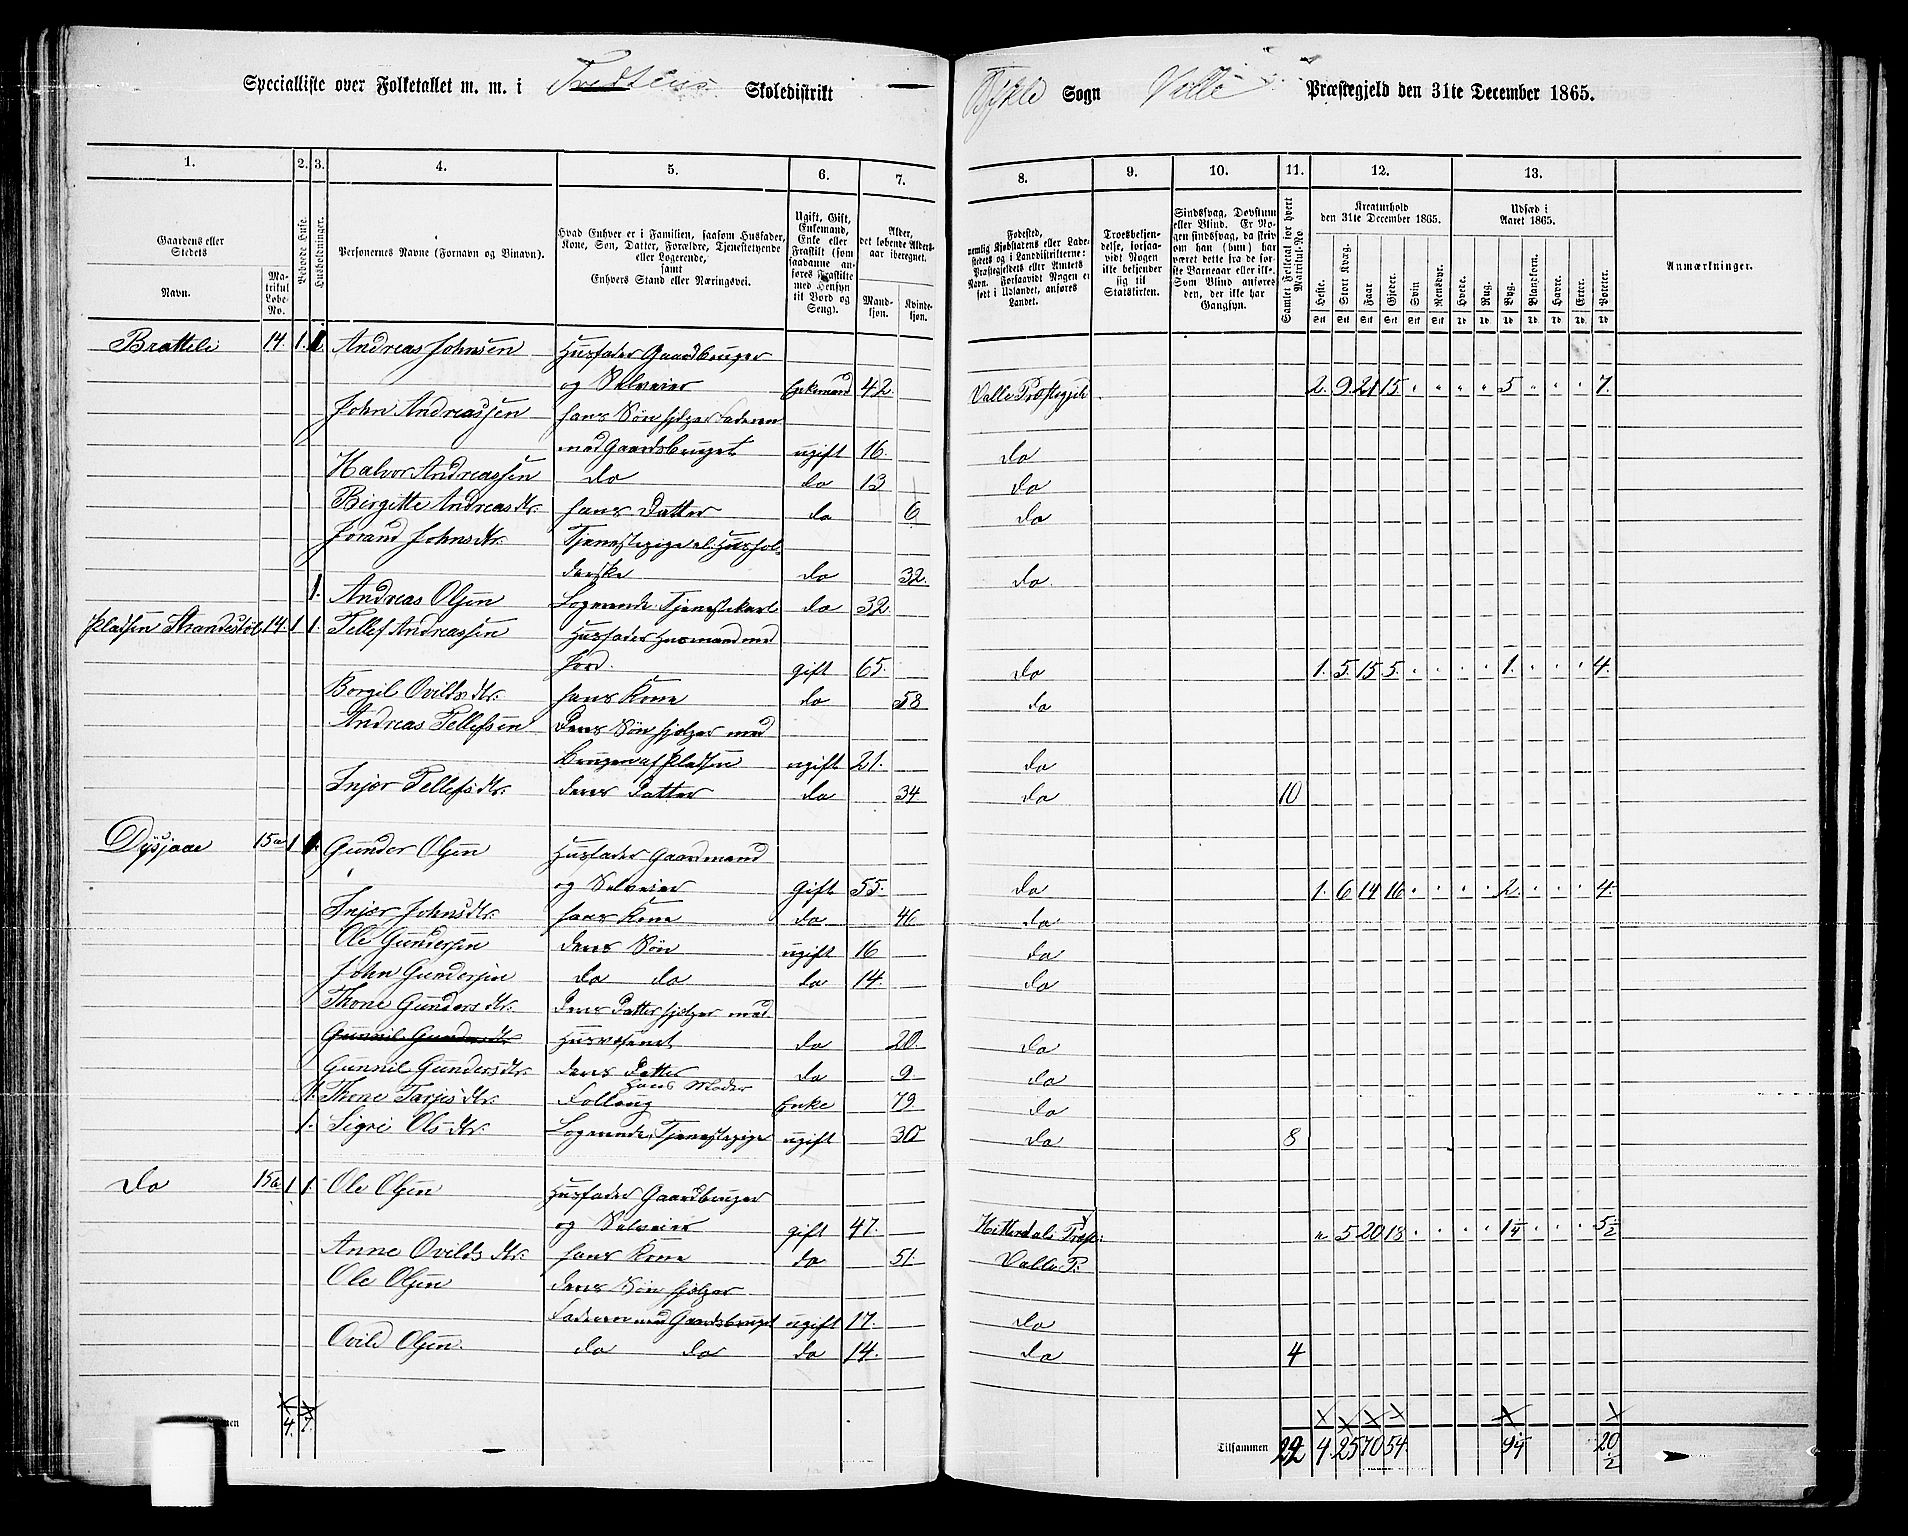 Specialliste over Folketallet m. m. i Skoledistrikt Bykle Sogn Valle Præstegjeld den 31te December 1865.
1. 2. 3. 4. 5. 6. 7. 8. 9. 10. 11. 12. 13.
Gaardens eller Stedets Navn.
Matrikul Løbe-No.
Beboede Huse.
Husholdninger.
Personernes Navne (Fornavn og Binavn).
Hvad Enhver er i Familien, saasom Husfader, Kone, Søn, Datter, Forældre, Tjenestetyende eller Logerende, samt Enhvers Stand eller Næringsvei.
Ugift, Gift, Enkemand, Enke eller Fraskilt (som saadanne anføres Fraskilte med Hensyn til Bord og Seng).
Alder, det løbende Alders-aar iberegnet.
Mandkjøn. Kvindekjøn.
Fødested, nemlig Kjøbstadens eller Ladestedets og i Landdistrikterne: Præstegjeldets eller Amtets Navn. Forsaavidt Nogen er født i Udlandet, anføres Landet.
Troesbekjendelse, forsaavidt Nogen ikke bekjender sig til Statskirken.
Sindssvag, Døvstum eller Blind. Er Nogen sindssvag, da skrives om han (hun) har været dette fra de første Barneaar eller ikke. Som Blind anføres den, der ikke har Gangsyn.
Samlet Folketal for hvert Matrikul-No
Kreaturhold den 31te December 1865.
Heste. Stort Kvæg. Faar Gjeder. Svin Rensdyr.
Udsæd i Aaret 1865.
Hvede. Rug. Byg. Blandkorn. Havre. Erter. Poteter.
Anmærkninger.
Bratteli 14. 1. 1. Andreas Johnsen Husfader Gaardbruger
og Selveier Enkemand 42. Valle Præstegjeld 2. 9. 21 15. 5. 7.
John Andreassen hans Søn hjelper Faderen
med Gaardsbruget ugift 16. do
Halvor Andreassen do do 13 do
Birgitte Andreasdtr. hans Datter do 6 do
Jorand Johnsdtr. Tjenestepige el. Hushol-
derske do 32. do
1. Andreas Olsen Logerende, Tjenestekarl do 32
Pladsen Strandestøl 14. 1 1. Tellef Andreassen Husfader Husmand med
Jord. gift 65. do 1. 5 15 5. 1. 4.
Borgil Ovildsdtr. hans Kone do 58 do
Andreas Tellefsen deres Søn hjelper med
brugen af Pladsen ugift 21. do
Injær Tellefsdtr. deres Datter do 34 do 10
Dysjaae 15a 1 1. Gunder Olsen Husfader Gaardmand
og Selveier gift 55. do 1. 6 14 16 2. 4.
Injær Johnsdtr. hans Kone do 46 do
Ole Gundersen deres Søn ugift 16 do
John Gundersen do do do 14. do
Thone Gundersdtr. deres Datter hjelper med
Gunnil Gundersdtr Husvæsenet do 20. do
Gunnil Gundersdtr. deres Datter do 9. do
1. Thone Tarjeisdtr. hans Moder Follaug Enke 79 do
1. Sigri Olsdtr. Logerende, Tjenestepige ugift 30 do 8
do 15b 1 1. Ole Olsen Husfader Gaardbruger
og Selveier gift 47. Hitterdals Præst: 5 20 18 1¼ 5½
Anne Ovildsdtr. hans Kone do 51. Valle P:
Ole Olsen deres Søn hjelper
Faderen med Gaardsbruget ugift 17. do
Ovild Olsen. do do do 14. do 4
4. 7. Tilsammen 22 4 25 70 54 9¼ 20½